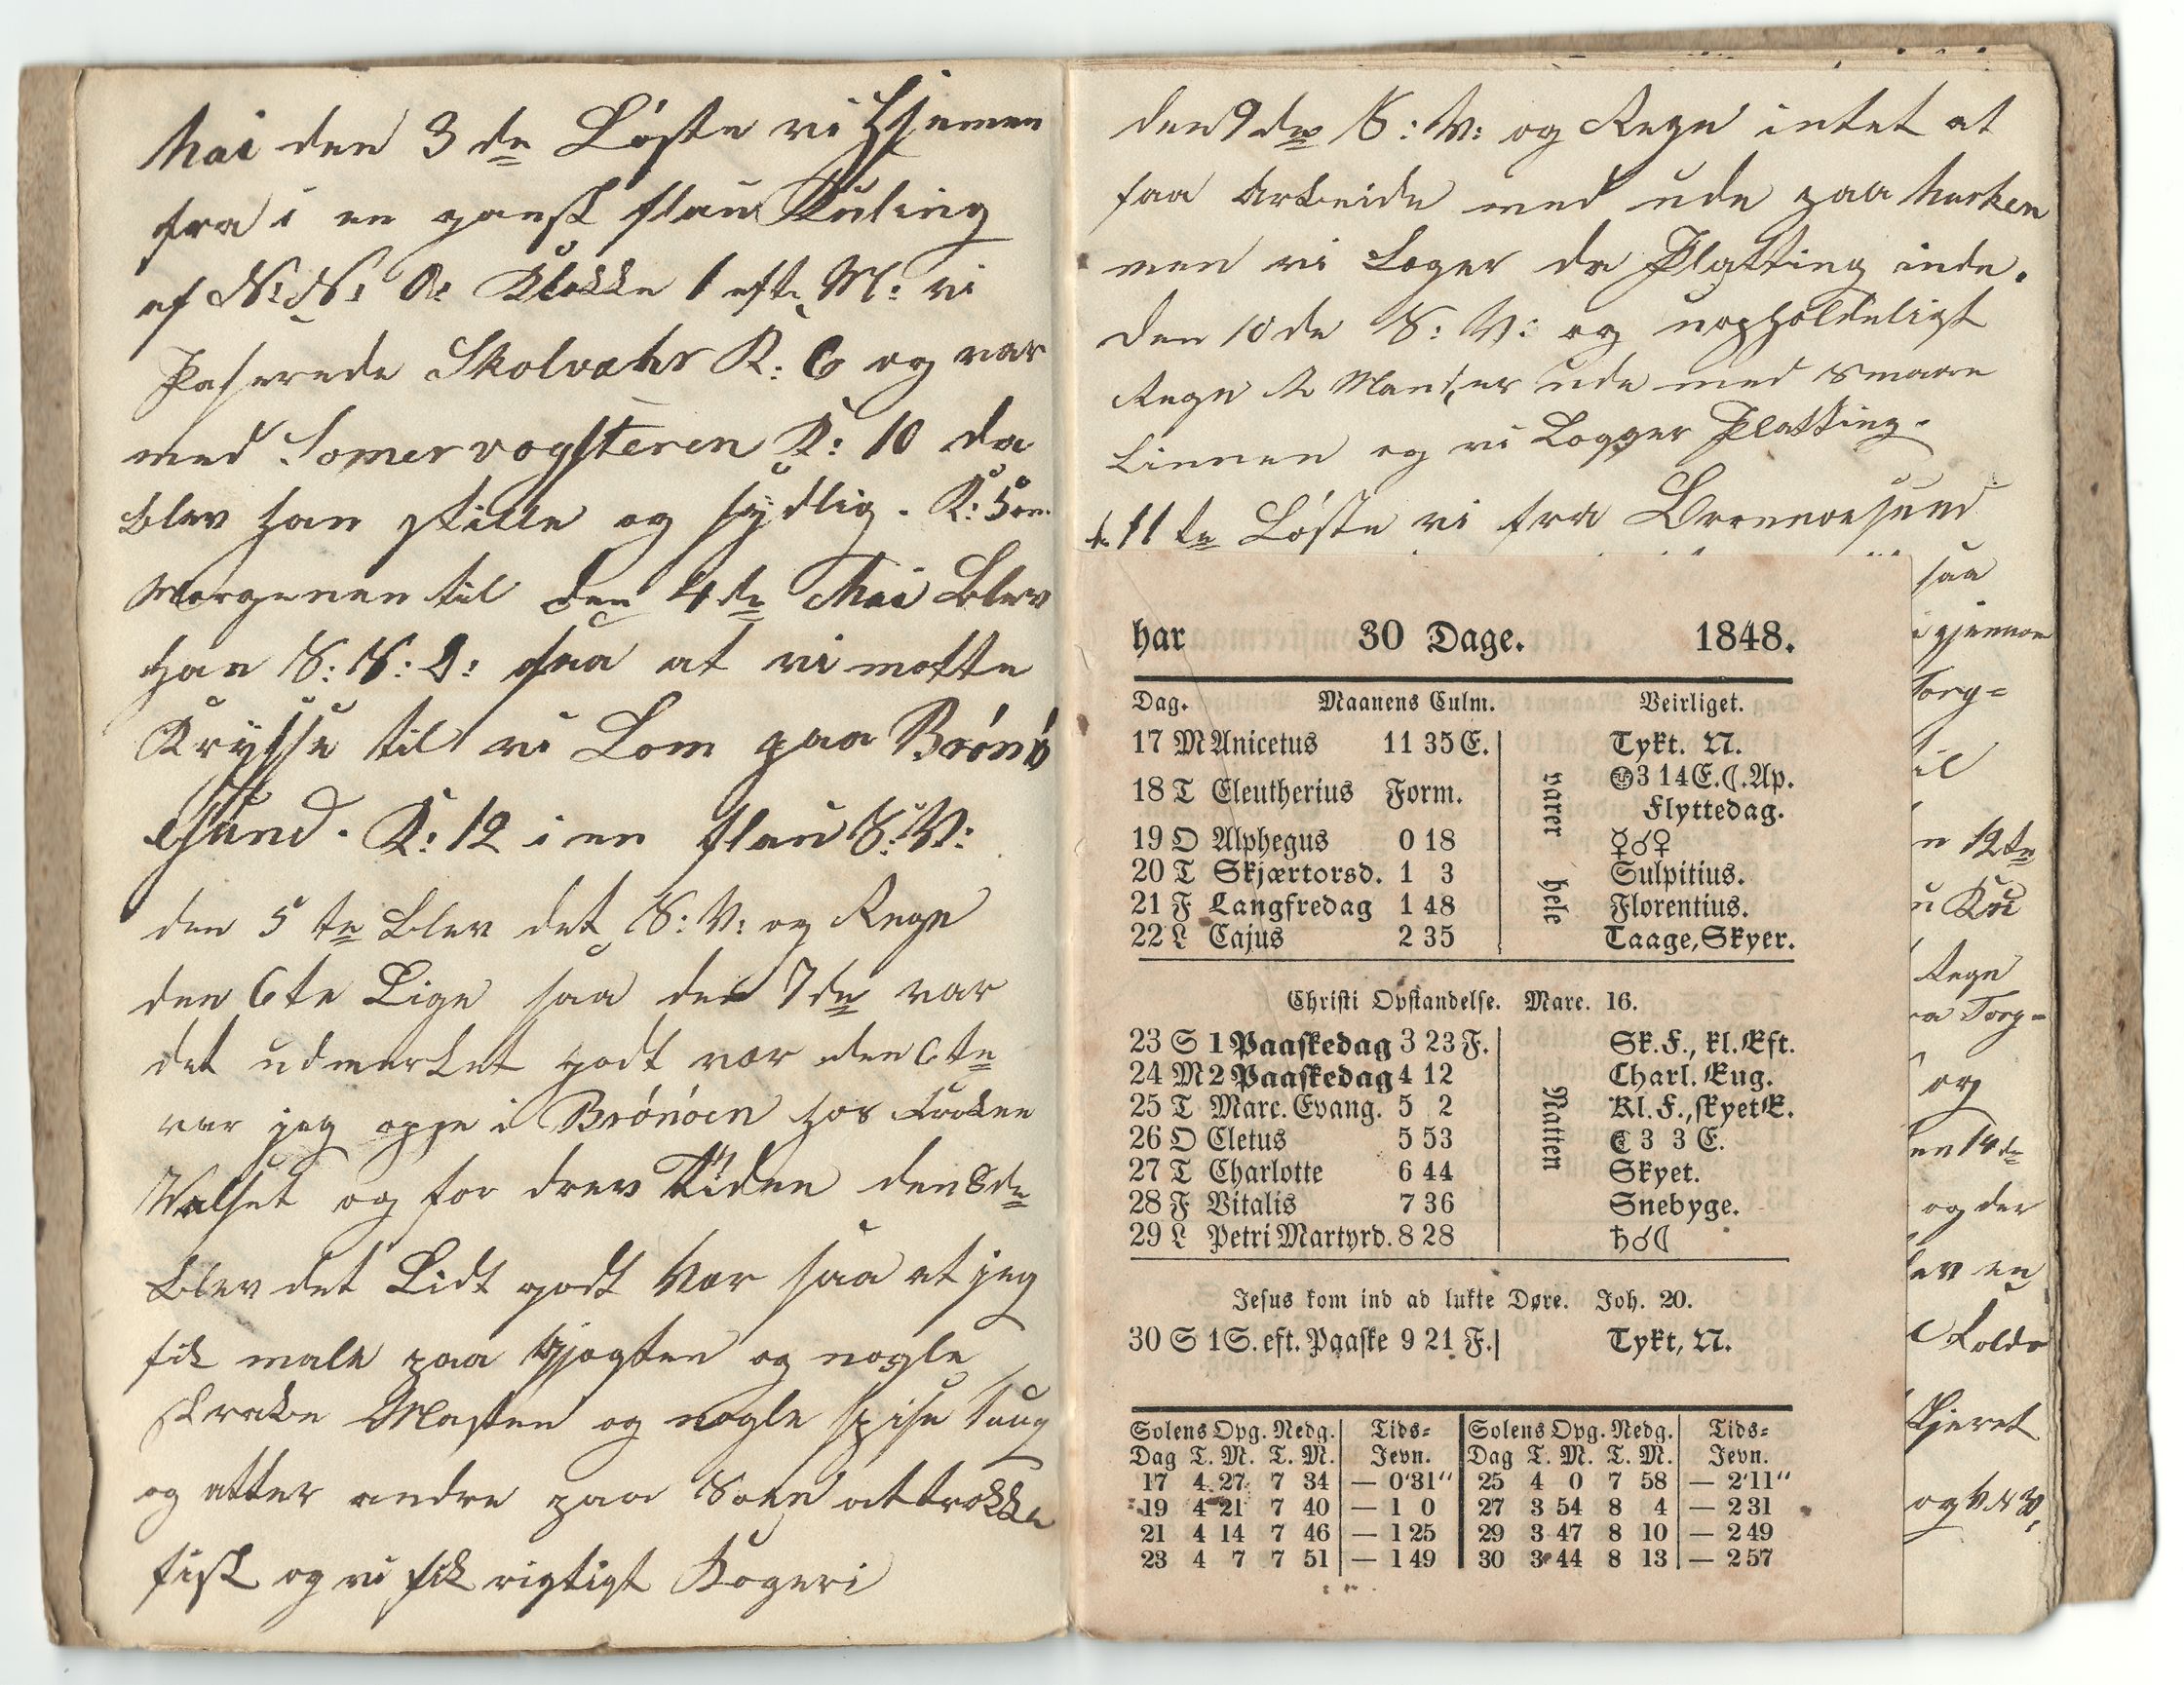 Mai den 3de Løste vi Hjemen
fra i en gansk flau Kuling
af N: N: O: Klokke 1 eft. M: vi
Paserede Skolvahr K: 6 og var
med Somervogsteren K: 10 da
blev han stille og sydlig. K: 5 om
Morgenen til den 4de Mai Blev
han S: S: O: saa at vi motte
Krysse til vi Kom paa Brönö
Sund. K: 12 i en flau S: V:
den 5te Blev det S: V: og Regn
den 6te Lige saa den 7de var
det udmerket godt vær den 6te
var jeg oppe i Brönöen hos
og for drev Tiden den 8de
Blev det Lidt godt Vær saa at jeg
fik male paa Jægten og nogle
skrabe Masten og nogle spise taug
og atter andre paa Soen at trække
fisk og vi fik rigtigt Kogeri
den 9de S: V: og Regn intet at
faa Arbeide med ude paa
men vi Loger da Platting inde.
den 10de S: V: og uopholdeligt
Regn 2 Mander ude med smaae
Linnen og vi Logger Platting.
d. 11te Löste vi fra Bronnoesund
saa
igjennom
Torg=
til
n 12te
Regn
ra Torg=
og
en 14de
og der
lev en
Kolde
og V. N. V.
har 30 Dage. 1848.
Dag. Maanens Culm. Veirliget.
17 M Anicetus 11 35 E. Tykt. N.
18 T Eleutherius Form. 3 14 E. ☾. Ap.
Flyttedag.
19 O Alphegus 0 18 ☿☌♀
20 T Skjærtorsd. 1 3 Sulpitius.
21 F Langfredag 1 48 Florentius.
22 L Cajus 2 35 Taage, Skyer.
varer hele
Christi Opstandelse. Marc. 16.
23 S 1 Paaskedag 3 23 F. Sk. F., kl. Eft.
24 M 2 Paaskedag 4 12 Charl. Eug.
25 T Marc. Evang. 5 2 Kl. F., skyet E.
26 O Cletus 5 53 ☾ 3 3 E.
27 T Charlotte 6 44 Skyet.
28 F Vitalis 7 36 Snebyge.
29 L Petri Martyrd. 8 28 ♄☌☾
Natten
Jesus kom ind ad lukte Døre. Joh. 20.
30 S 1 S. eft. Paaske 9 21 F. Tykt, N.
Solens Opg. Nedg. Tids= Solens Opg. Nedg. Tids=
Dag T. M. T. M. Jevn. Dag T. M. T. M. Jevn.
17 4 27 7 34 — 0'31" 25 4 0 7 58 — 2'11"
19 4 21 7 40 — 1 0 27 3 54 8 4 — 2 31
21 4 14 7 46 — 1 25 29 3 47 8 10 — 2 49
23 4 7 7 51 — 1 49 30 3 44 8 13 — 2 57